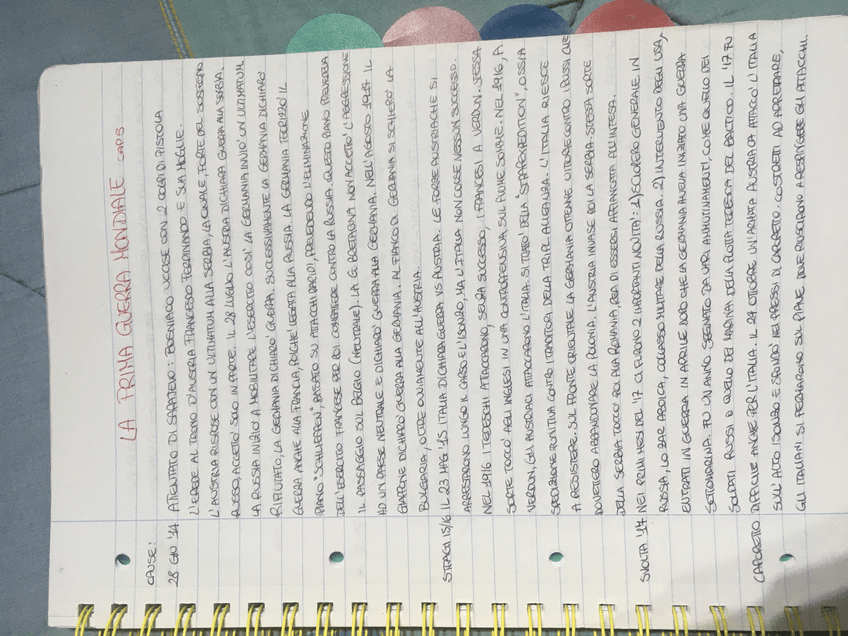 LA PRIMA GUERRA MONDIALE CAP.3
CAUSE:
28 GIU '14 ATTENTATO DI SARAJEVO: BOSNIACO UCCISE CON 2 COLPI DI PISTOLA
L'EREDE AL TRONO D'AUSTRIA FRANCESCO FERDINANDO E SUA MOGLIE.
L'AUSTRIA RISPOSE CON UN ULTIMATUM ALLA SERBIA, LA QUALE, FORTE DEL SOSTEGNO
RUSSO, ACCETTO' SOLO IN PARTE. IL 28 LUGLIO L'AUSTRIA DICHIARA GUERRA ALLA SERBIA.
LA RUSSIA INIZIO' A MOBILITARE L'ESERCITO COSI' LA GERMANIA INVIO' UN ULTIMATUM
RIFIUTATO, LA GERMANIA DICHIARO' GUERRA. SUCCESSIVAMENTE LA GERMANIA DICHIARO'
GUERRA ANCHE ALLA FRANCIA, POICHE' LEGATA ALLA RUSSIA. LA GERMANIA TEORIZZO' IL
PIANO "SCHLIEFFEN", BASATO SU ATTACCHI RAPIDI, PREVEDENDO L'ELIMINAZIONE
DELL'ESERCITO FRANCESE PER POI COMBATTERE CONTRO LA RUSSIA. QUESTO PIANO PREVEDEVA
IL PASSAGGIO SUL BELGIO (NEUTRALE). LA G. BRETAGNA NON ACCETTO' L'AGGRESSIONE
AD UN PAESE NEUTRALE E DICHIARO' GUERRA ALLA GERMANIA. NELL'AGOSTO 1914 IL
GIAPPONE DICHIARO' GUERRA ALLA GERMANIA. AL FIANCO DI GERMANIA SI SCHIERO' LA
BULGARIA, OLTRE OVVIAMENTE ALL'AUSTRIA.
STRAGI 15/16 IL 23 MAG '15 ITALIA DICHIARA GUERRA VS AUSTRIA. LE FORZE AUSTRIACHE SI
ARRESTARONO LUNGO IL CARSO E L'ISONZO, MA L'ITALIA NON COLSE NESSUN SUCCESSO.
NEL 1916 I TEDESCHI ATTACCARONO, SENZA SUCCESSO, I FRANCESI A VERDUN. STESSA
SORTE TOCCO' AGLI INGLESI IN UNA CONTROFFENSIVA, SUL FIUME SOMME. NEL 1916, A
VERDUN, GLI AUSTRIACI ATTACCARONO L'ITALIA. SI TRATTO' DELLA "STRAFEXPEDITION", OSSIA
SPEDIZIONE PUNITIVA CONTRO I TRADITORI DELLA TRIPL. ALLEANZA. L'ITALIA RIESCE
A RESISTERE. SUL FRONTE ORIENTALE LA GERMANIA OTTENNE VITTORIE CONTRO I RUSSI CHE
DOVETTERO ABBANDONARE LA POLONIA. L'AUSTRIA INVASE POI LA SERBIA. STESSA SORTE
DELLA SERBIA TOCCO' POI ALLA ROMANIA, REA DI ESSERSI AFFIANCATA ALL'INTESA.
SVOLTA '17 NEI PRIMI MESI DEL '17 CI FURONO 2 IMPORTANTI NOVITA': 1) SCIOPERO GENERALE IN
RUSSIA, LO ZAR ABDICA, COLLASSO MILITARE DELLA RUSSIA. 2) INTERVENTO DEGLI USA,
ENTRATI IN GUERRA IN APRILE DOPO CHE LA GERMANIA AVEVA INIZIATO UNA GUERRA
SOTTOMARINA. FU UN ANNO SEGNATO DA VARI AMMUTINAMENTI, COME QUELLO DEI
SOLDATI RUSSI O QUELLO DEI MARINAI DELLA FLOTTA TEDESCA DEL BALTICO. IL '17 FU
CAPORETTO DIFFICILE ANCHE PER L'ITALIA. IL 24 OTTOBRE UN'ARMATA AUSTRIACA ATTACCO' L'ITALIA
SULL'ALTO ISONZO E SFONDO' NEI PRESSI DI CAPORETTO. COSTRETTI AD ARRETRARE,
GLI ITALIANI SI FERMARONO SUL PIAVE DOVE RIUSCIRONO A RESPINGERE GLI ATTACCHI.